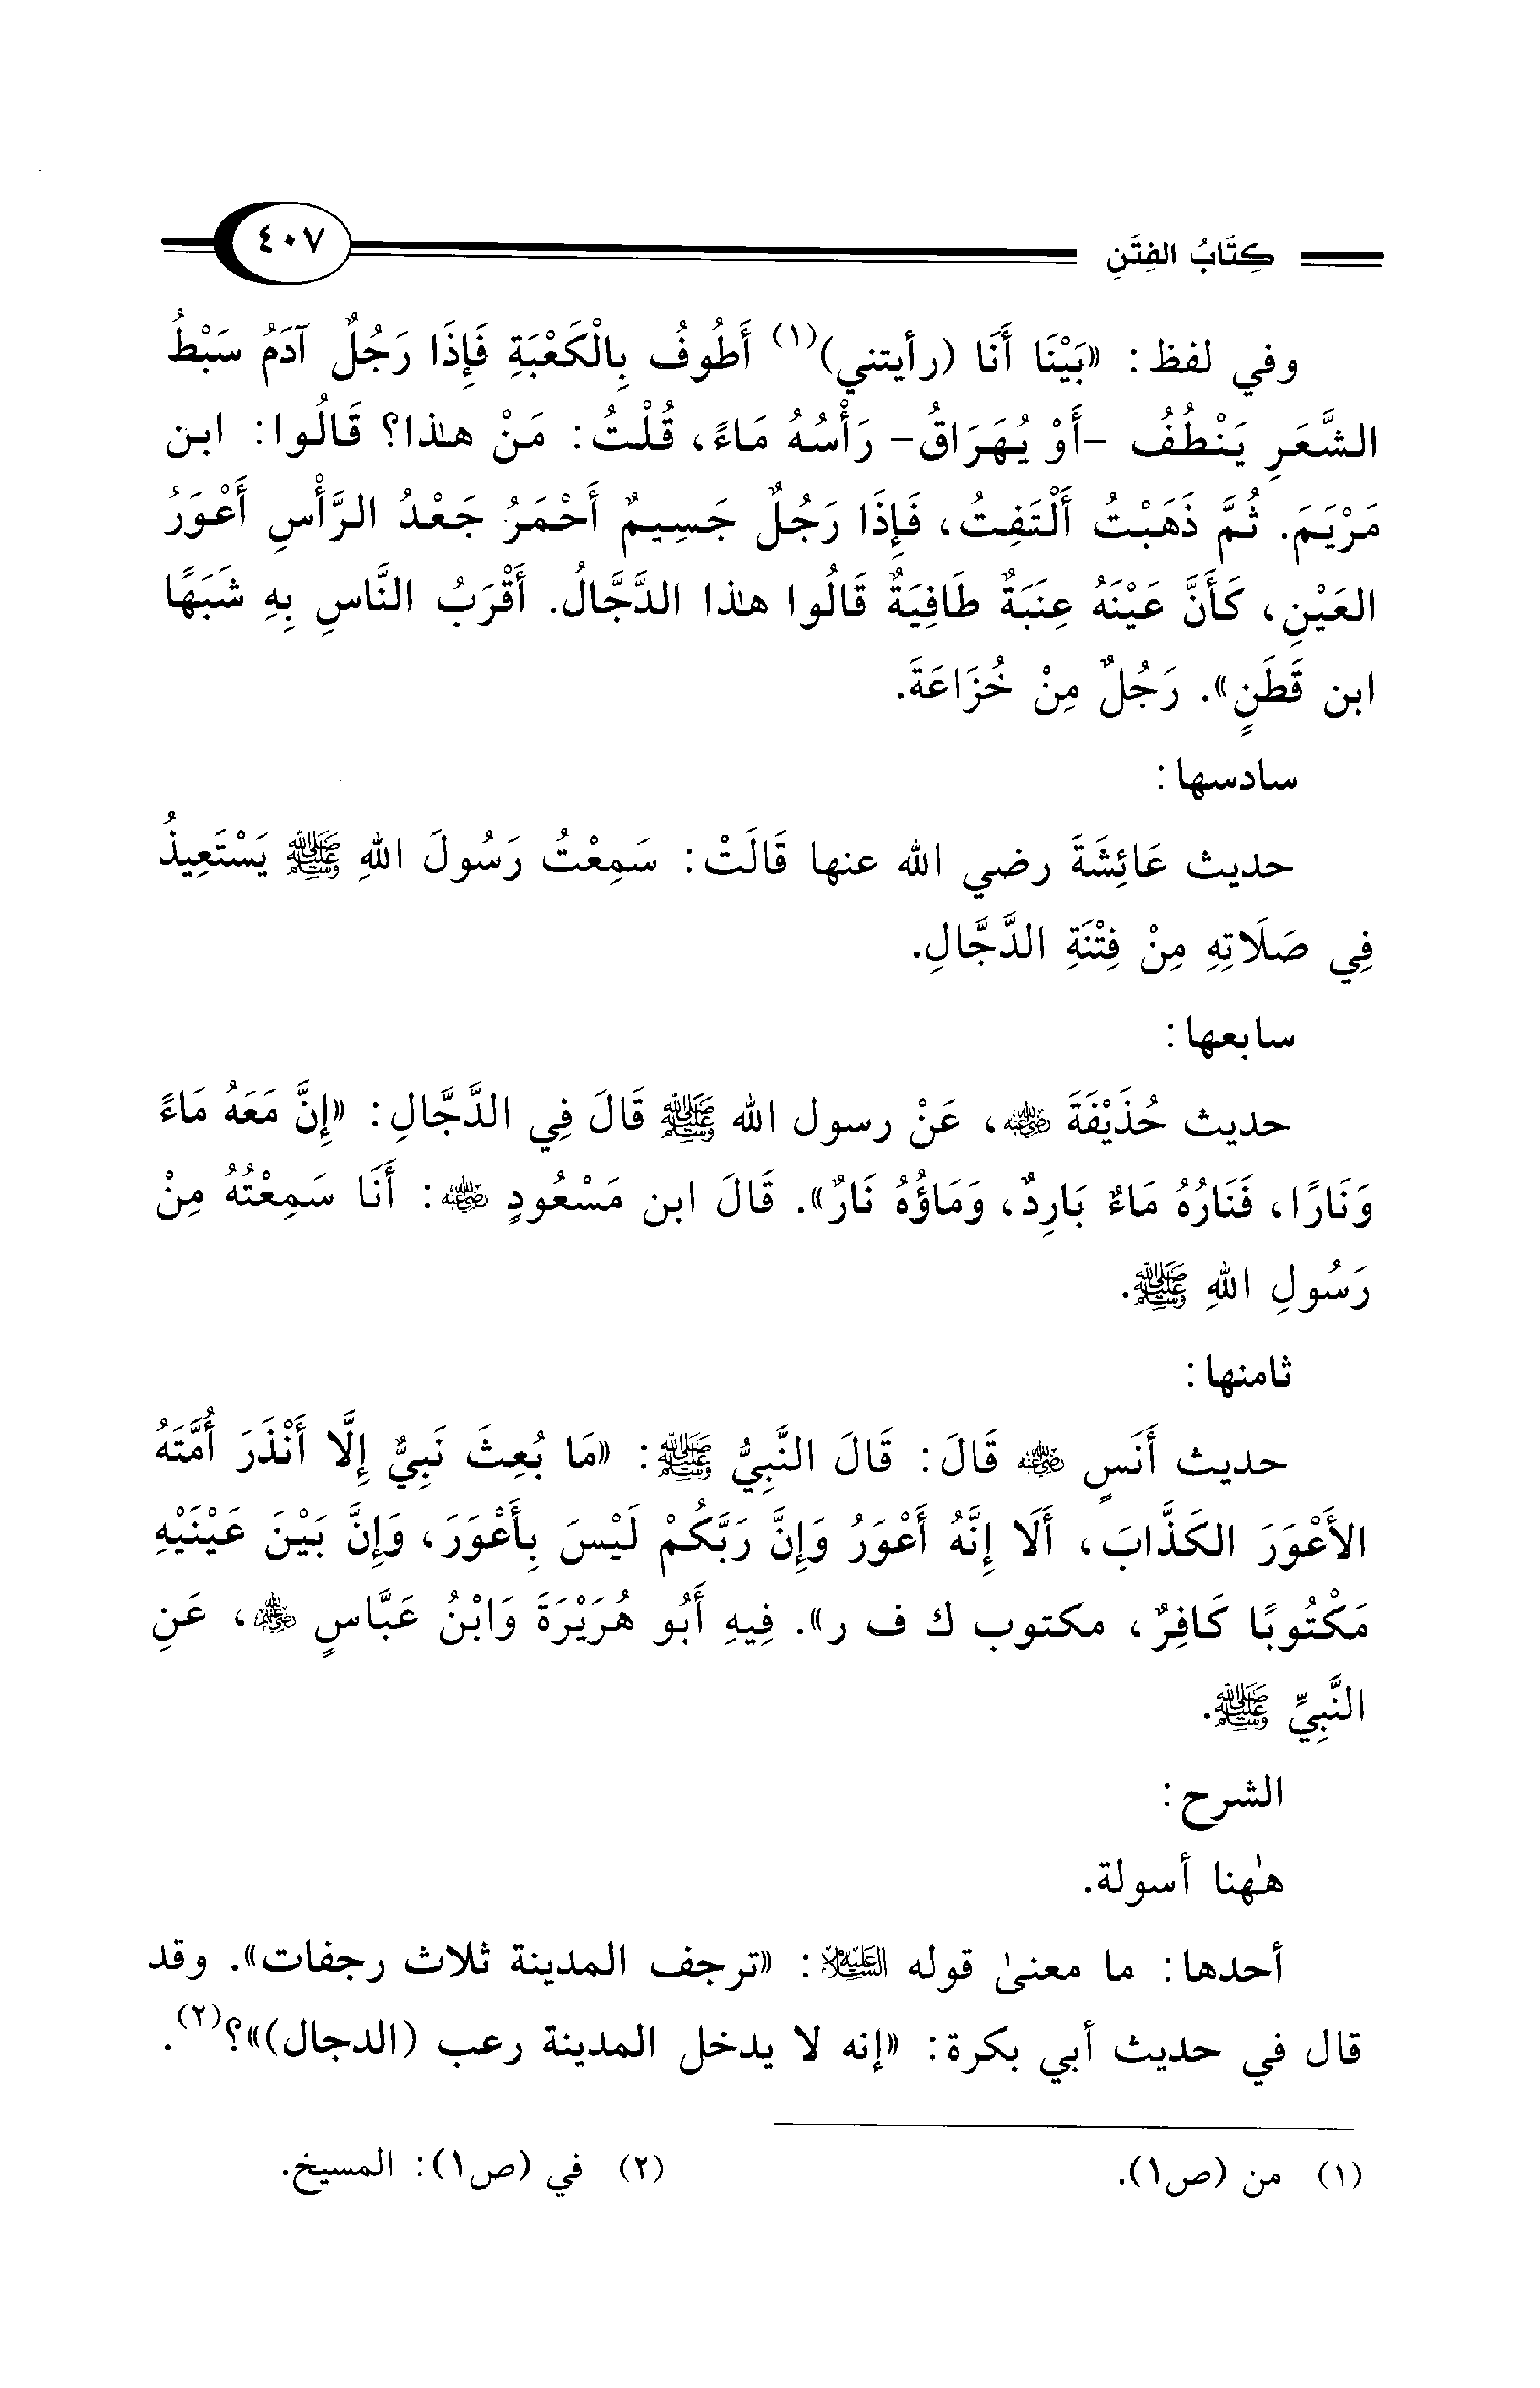 كِتَابُ الفِتَنِ ٤٠٧
وفي لفظ: «بَيْنَا أَنَا (رأيتني)(١) أَطُوفُ بِالْكَعْبَةِ فَإِذَا رَجُلٌ آدَمُ سَبْطُ
الشَّعَرِ يَنْطُفُ -أَوْ يُهَرَاقُ- رَأْسُهُ مَاءً، قُلْتُ: مَنْ هذا؟ قَالُوا: ابن
مَرْيَمَ. ثُمَّ ذَهَبْتُ أَلْتَفِتُ، فَإِذَا رَجُلٌ جَسِيمٌ أَحْمَرُ جَعْدُ الرَّأْسِ أَعْوَرُ
العَيْنِ، كَأَنَّ عَيْنَهُ عِنَبَةٌ طَافِيَةٌ قَالُوا هذا الدَّجَّالُ. أَقْرَبُ النَّاسِ بِهِ شَبَهًا
ابن قَطَنٍ». رَجُلٌ مِنْ خُزَاعَةَ.
سادسها:
حديث عَائِشَةَ رضي الله عنها قَالَتْ: سَمِعْتُ رَسُولَ اللهِ ﷺ يَسْتَعِيذُ
فِي صَلَاتِهِ مِنْ فِتْنَةِ الدَّجَّالِ.
سابعها:
حديث حُذَيْفَةَ رضي الله عنه، عَنْ رسول الله ﷺ قَالَ فِي الدَّجَّالِ: «إِنَّ مَعَهُ مَاءً
وَنَارًا، فَنَارُهُ مَاءٌ بَارِدٌ، وَمَاؤُهُ نَارٌ». قَالَ ابن مَسْعُودٍ رضي الله عنه: أَنَا سَمِعْتُهُ مِنْ
رَسُولِ اللهِ ﷺ.
ثامنها:
حديث أَنَسٍ رضي الله عنه قَالَ: قَالَ النَّبِيُّ ﷺ: «مَا بُعِثَ نَبِيٌّ إِلَّا أَنْذَرَ أُمَّتَهُ
الأَعْوَرَ الكَذَّابَ، أَلَا إِنَّهُ أَعْوَرُ وَإِنَّ رَبَّكُمْ لَيْسَ بِأَعْوَرَ، وَإِنَّ بَيْنَ عَيْنَيْهِ
مَكْتُوبًا كَافِرٌ، مكتوب ك ف ر». فِيهِ أَبُو هُرَيْرَةَ وَابْنُ عَبَّاسٍ رضي الله عنهم، عَنِ
النَّبِيِّ ﷺ.
الشرح:
هٰهنا أسولة.
أحدها: ما معنىٰ قوله عليه السلام: «ترجف المدينة ثلاث رجفات». وقد
قال في حديث أبي بكرة: «إنه لا يدخل المدينة رعب (الدجال)»؟(٢).
(١) من (ص١).
(٢) في (ص١): المسيخ.